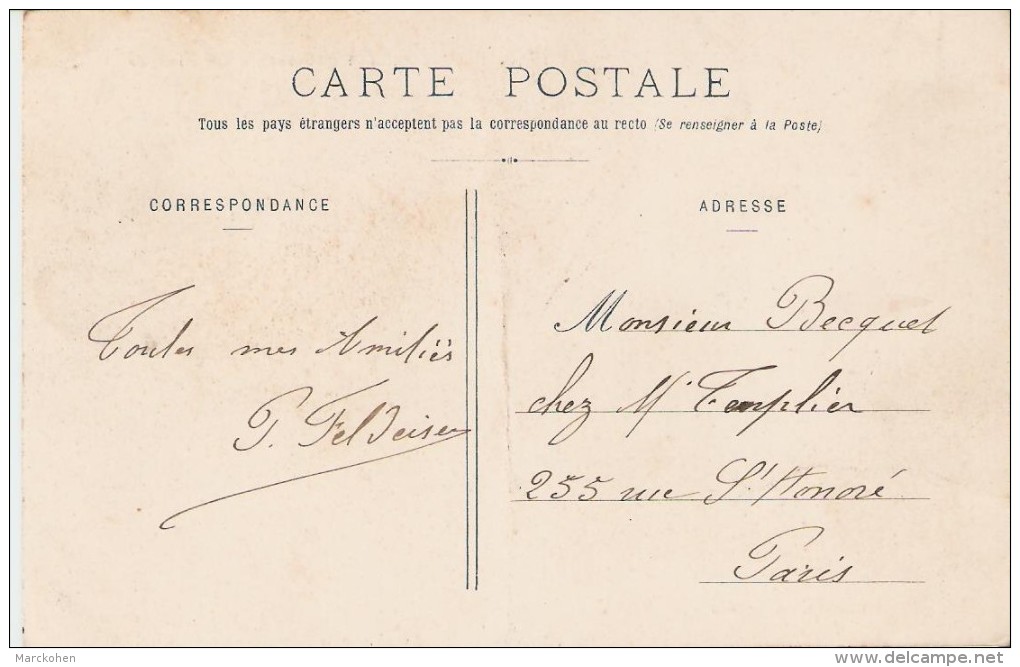 CARTE POSTALE
Tous les pays étrangers n'acceptent pas la correspondance au recto (Se renseigner à la Poste)
CORRESPONDANCE
Toutes mes Amitiés
P. Feldeisen
ADRESSE
Monsieur Becquet
chez Mr Templier
255 rue St Honoré
Paris
Marckohen
delcampe.net